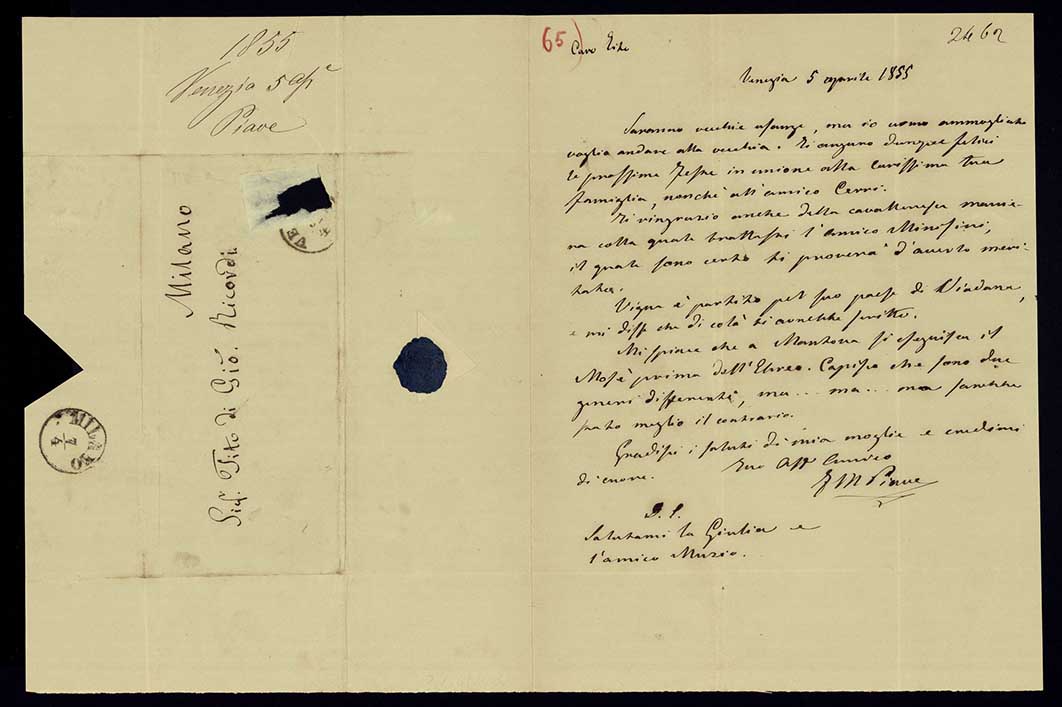 1855
Venezia 5 Ap.e
Piave
Milano
Sigr. Tito di Giō. Ricordi
VE
MILANO
7/4
65)
2462
Caro Tito
Venezia 5 aprile 1855
Saranno vecchie usanze, ma io uomo ammogliato
voglio andare alla vecchia. Ti auguro dunque felici
le prossime feste in unione alla carissima tua
famiglia, nonchè all'amico Cerri.
Ti ringrazio anche della cavalleresca manie-
ra colla quale trattasti l'amico
il quale sono certo ti proverà d'averlo meri-
tato.
Vigna è partito pel suo paese di Viadana,
e mi disse che di colà ti avrebbe scritto.
Mi spiace che a Mantova si eseguisca il
Mosè prima dell'Ebreo. Capisco che sono due
generi differenti, ma ... ma ... ma sarebbe
stato meglio il contrario.
Gradisci i saluti di mia moglie e credimi
di cuore.
Tuo Aff Amico
F M Piave
P. S.
Salutami la Giulia e
l'amico Muzio.